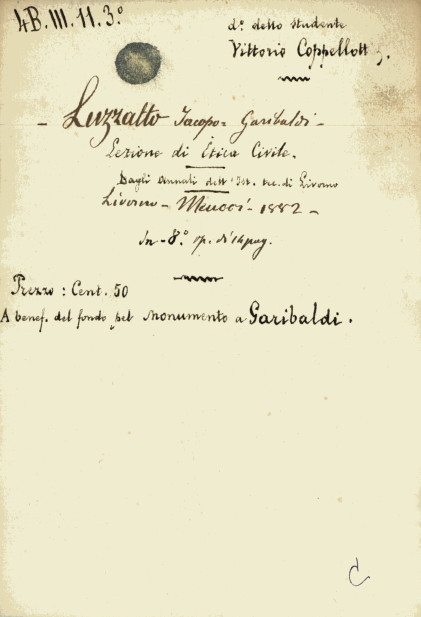 4B.III.11.3°
d.° dello studente
Vittorio Coppellotti
- Luzzatto Jacopo = Garibaldi -
Lezione di Etica Civile.
Dagli Annali dell' Ist. tec. di Livorno
Livorno - Meucci - 1882 -
In - 8.° op. di pag.
Prezzo : Cent. 50
A benef. del fondo pel Monumento a Garibaldi.
C